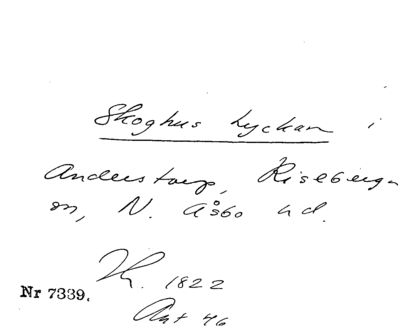 Skoghus Lyckan i
Anderstorp, Riseberga
sn, N. Åsbo hd.
1822
Nr 7339.
Ant 46